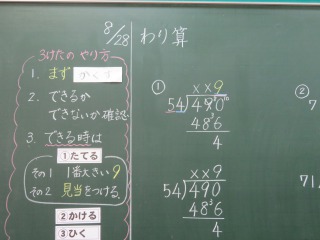 8/28
わり算
3けたの やり方
1. まず
2. できるか
できないか確認
3. できる時は
①たてる
その1 1番大きい9
その2 見当をつける。
②かける
③ひく
①
××9
54)490
486
4
××9
54)490
486
4
②
7
71.